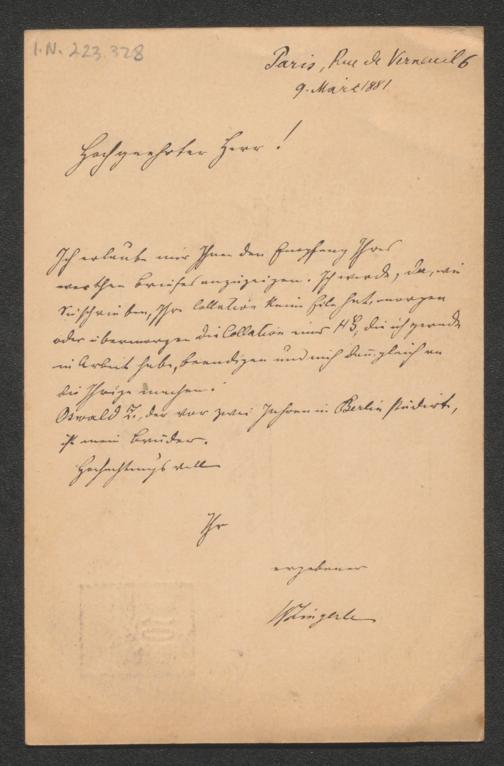 I.N. 223.328
Paris, Rue de Verneuil 6
9. März 1881
Hochgeehrter Herr!
Ich erlaube mir Ihnen den Empfang Ihres
werthen Briefes anzuzeigen. Ich werde, da, wie
Sie schreiben, Ihre Collation keine Eile hat, morgen
oder übermorgen die Collation einer HS, die ich gerade
in Arbeit habe, beendigen und mich dann gleich an
die Ihrige machen.
Oswald Z., der vor zwei Jahren in Berlin studierte,
ist mein Bruder.
Hochachtungsvoll
Ihr
ergebener
WZingerle